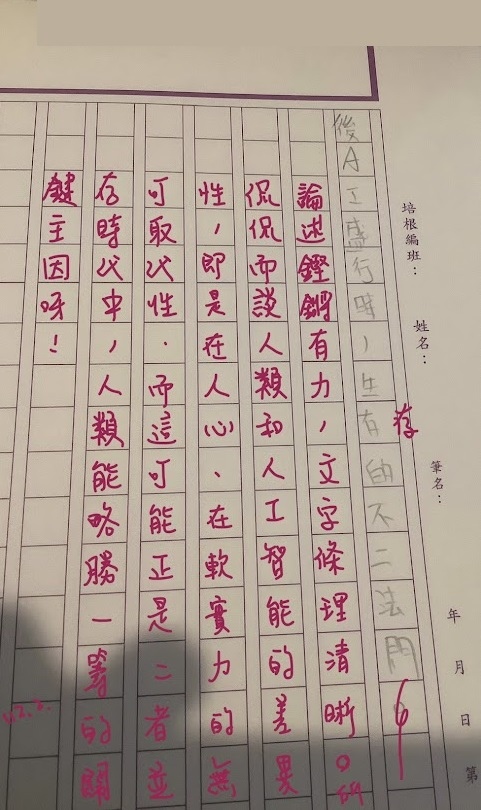 培根編班：
姓名：
筆名：
年 月 日 第
後AI盛行時，生有的不二法門
存
論述鏗鏘有力，文字條理清晰。
侃侃而談人類和人工智能的差異
性，即是在人心、在軟實力的無
可取代性．而這可能正是二者並
存時代中，人類能略勝一籌的關
鍵主因呀！